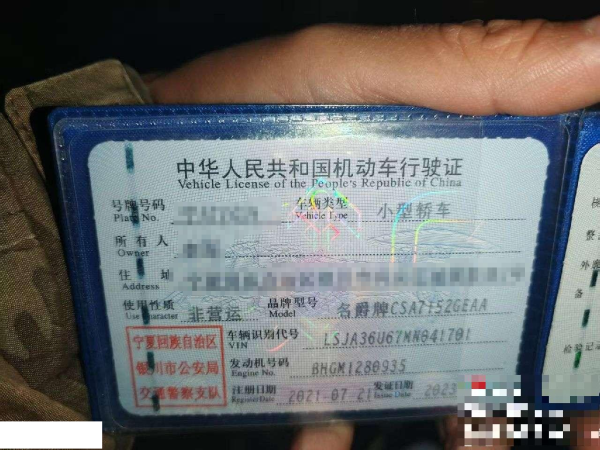 中华人民共和国机动车行驶证
Vehicle License of the People's Republic of China
号牌号码 车辆类型 小型轿车
Plate No. Vehicle Type
所有人
Owner
住 址
Address
使用性质 非营运 品牌型号 名爵牌CSA7152GEAA
Use Character Model
宁夏回族自治区
银川市公安局
交通警察支队
车辆识别代号 LSJA36U67MN041701
VIN
发动机号码 BHGM1280935
Engine No.
注册日期 2021-07-21 发证日期 2023
Register Date Issue Date
检验记录